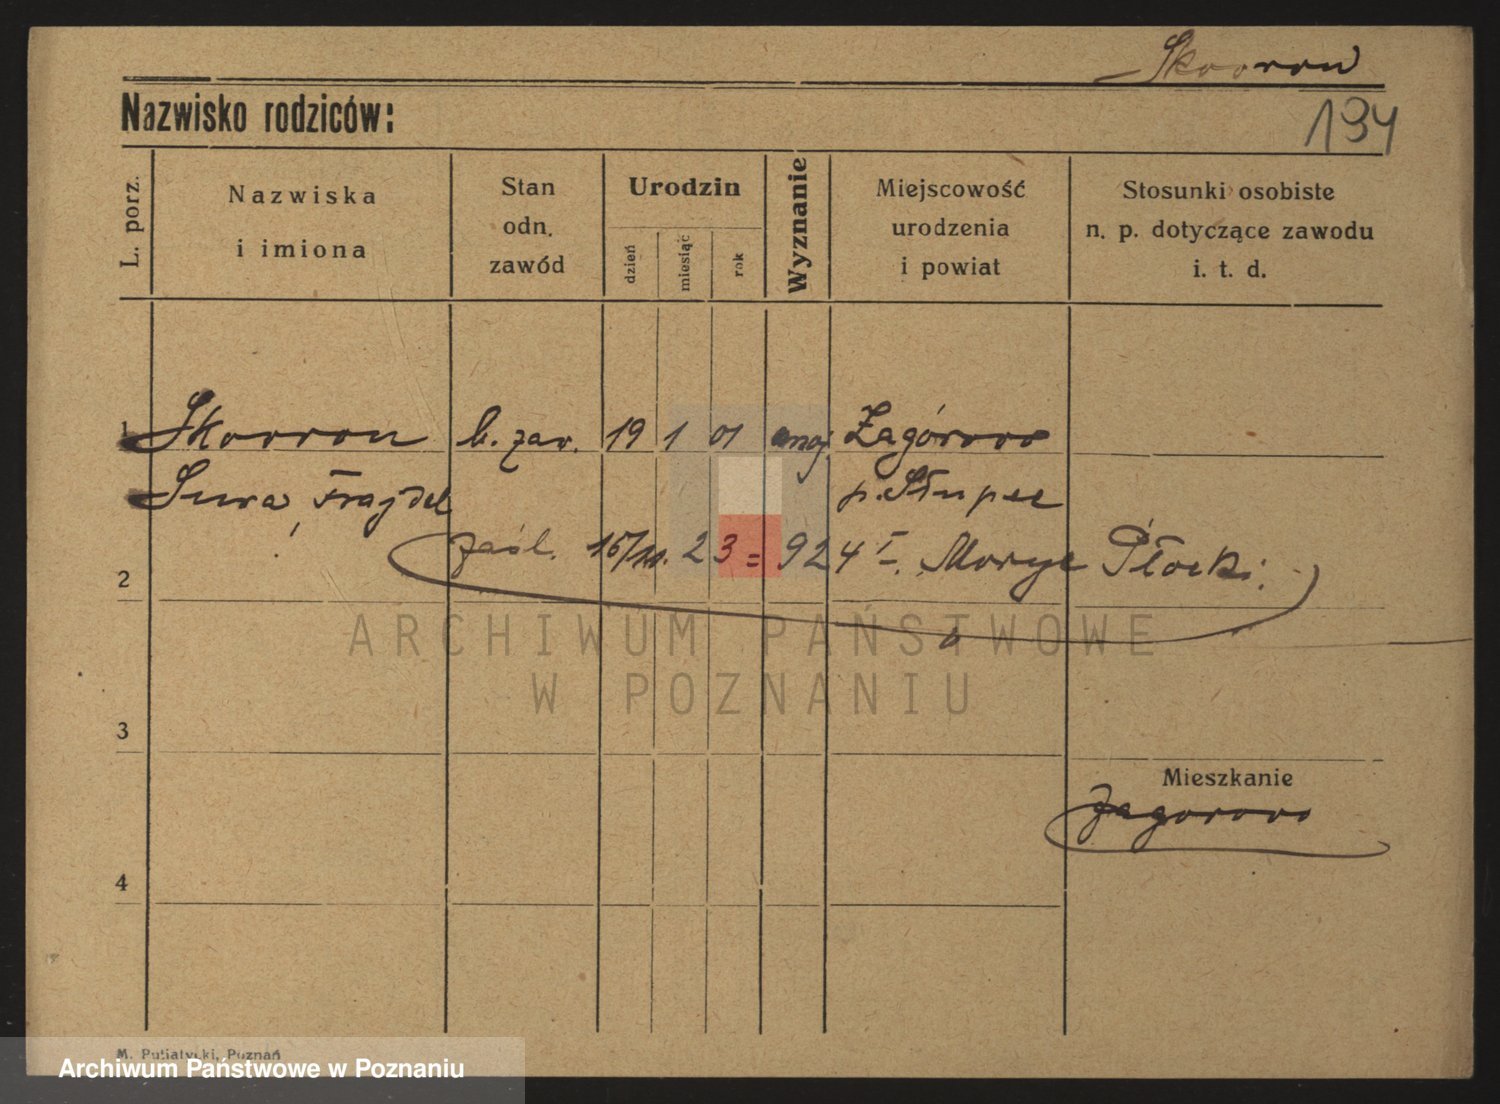 Skowron
Nazwisko rodziców:
194
L. porz.
Nazwiska
i imiona
Stan
odn.
zawód
Urodzin
dzień
miesiąc
rok
Wyznanie
Miejscowość
urodzenia
i powiat
Stosunki osobiste
n. p. dotyczące zawodu
i. t. d.
1 Skowron b. zaw. 19 1 01 mojż. Zagórowo
Sura, Frajdel p. Słupce
zaśl. 15/11. 23 = 924 I. Moryc Płocki.
2
ARCHIWUM PAŃSTWOWE
W POZNANIU
3
Mieszkanie
Zagorowo
4
M. Putiatycki, Poznań
Archiwum Państwowe w Poznaniu